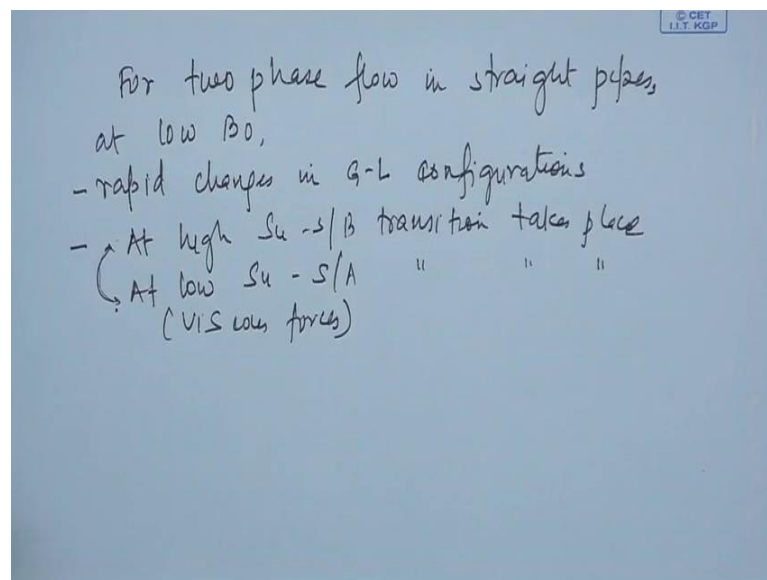 © CET
I.I.T. KGP
For two phase flow in straight pipes,
at low Bo,
- rapid changes in G-L configurations
- At high Su - S/B transition takes place
At low Su - S/A " " "
(Viscous forces)